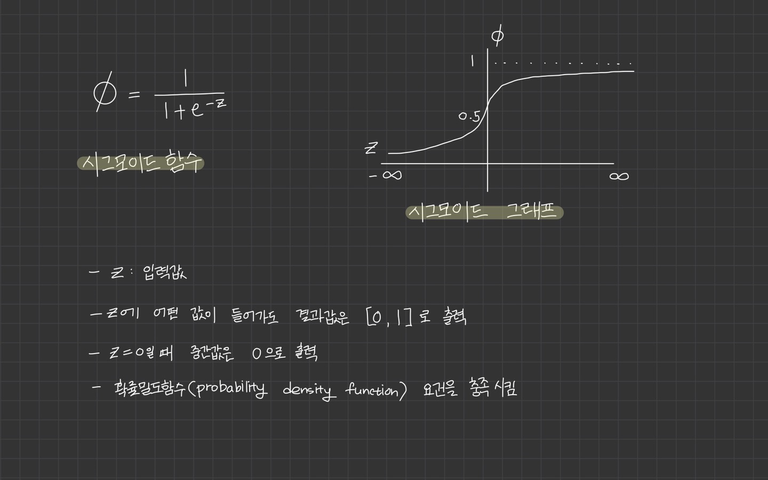 φ = 1 / (1 + e^-z)
시그모이드 함수
φ
1
0.5
z
-∞ ∞
시그모이드 그래프
- z : 입력값
- z에 어떤 값이 들어가도 결과값은 [0, 1]로 출력
- z=0일 때 중간값은 0으로 출력
- 확률밀도함수(probability density function) 요건을 충족시킴